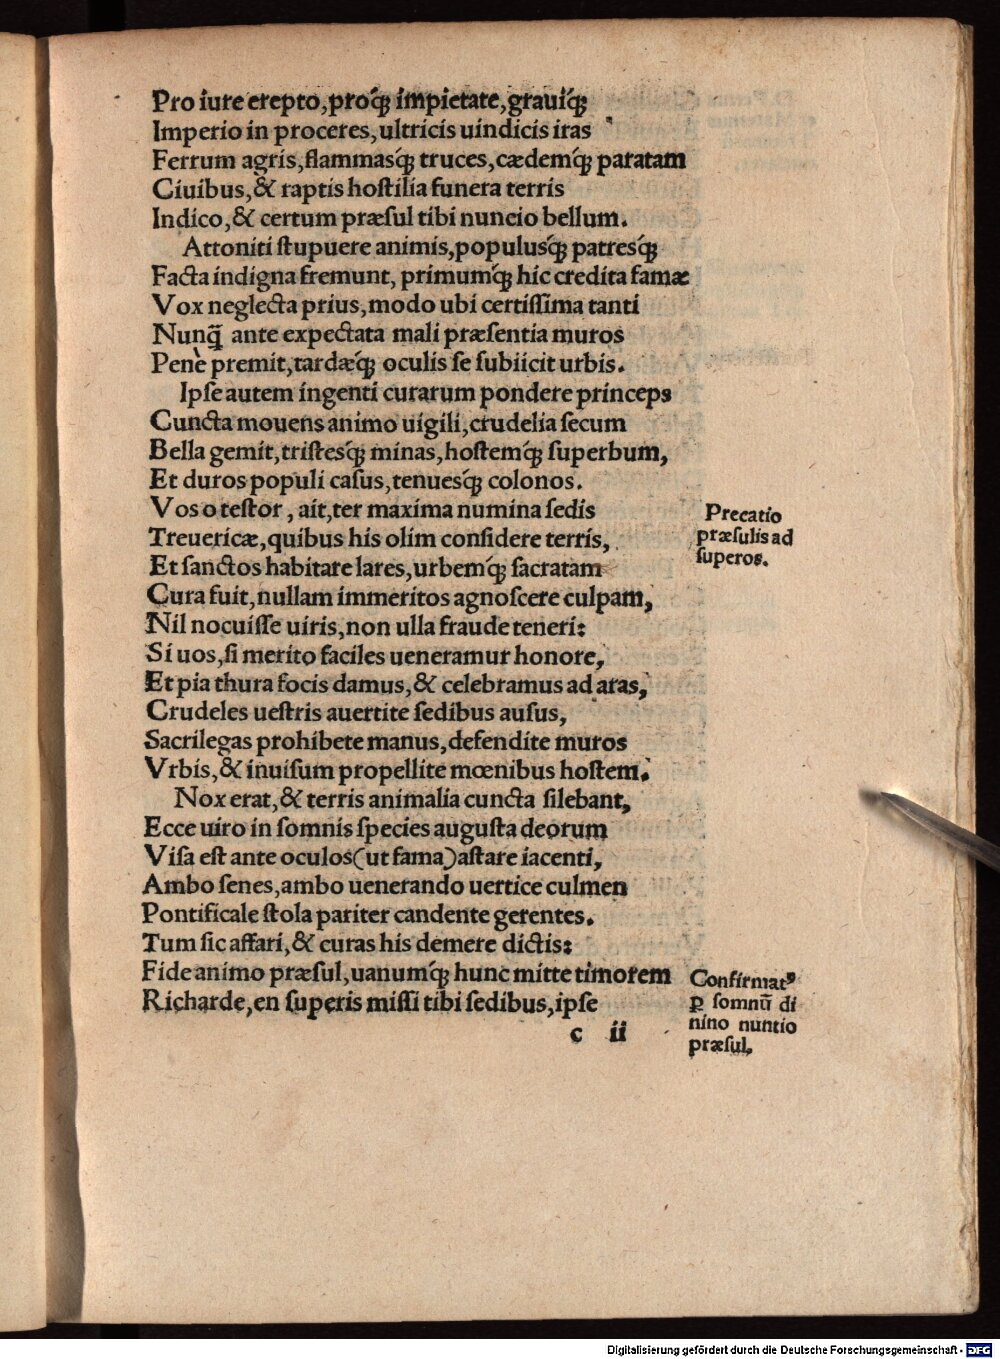 Pro iure erepto,proq́ꝫ impietate,grauiq́ꝫ
Imperio in proceres,ultricis uindicis iras
Ferrum agris,flammasq́ꝫ truces,cædemq́ꝫ paratam
Ciuibus,& raptis hoſtilia funera terris
Indico,& certum præſul tibi nuncio bellum.
Attoniti ſtupuere animis,populusq́ꝫ patresq́ꝫ
Facta indigna fremunt, primumq́ꝫ hic credita famæ
Vox neglecta prius,modo ubi certiſſima tanti
Nunq̃ ante expectata mali præſentia muros
Penè premit,tardæq́ꝫ oculis ſe ſubiicit urbis.
Ipſe autem ingenti curarum pondere princeps
Cuncta mouens animo uigili,crudelia ſecum
Bella gemit,triſtesq́ꝫ minas,hoſtemq́ꝫ ſuperbum,
Et duros populi caſus,tenuesq́ꝫ colonos.
Vos o teſtor, ait,ter maxima numina ſedis
Treuericæ,quibus his olim conſidere terris,
Et ſanctos habitare lares,urbemq́ꝫ ſacratam
Cura fuit,nullam immeritos agnoſcere culpam,
Nil nocuiſſe uiris,non ulla fraude teneri:
Si uos,ſi merito faciles ueneramur honore,
Et pia thura focis damus,& celebramus ad aras,
Crudeles ueſtris auertite ſedibus auſus,
Sacrilegas prohibete manus,defendite muros
Vrbis,& inuiſum propellite mœnibus hoſtem.
Nox erat,& terris animalia cuncta ſilebant,
Ecce uiro in ſomnis ſpecies auguſta deorum
Viſa eſt ante oculos(ut fama)aſtare iacenti,
Ambo ſenes,ambo uenerando uertice culmen
Pontificale ſtola pariter candente gerentes.
Tum ſic affari,& curas his demere dictis:
Fide animo præſul,uanumq́ꝫ hunc mitte timorem
Richarde,en ſuperis miſſi tibi ſedibus,ipſe
c ii
Precatio
præſulis ad
ſuperos.
Confirmatꝰ
ꝑ ſomnũ di
nino nuntio
præſul.
Digitalisierung gefördert durch die Deutsche Forschungsgemeinschaft - DFG